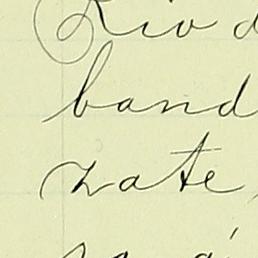 Rio d
band
rate,